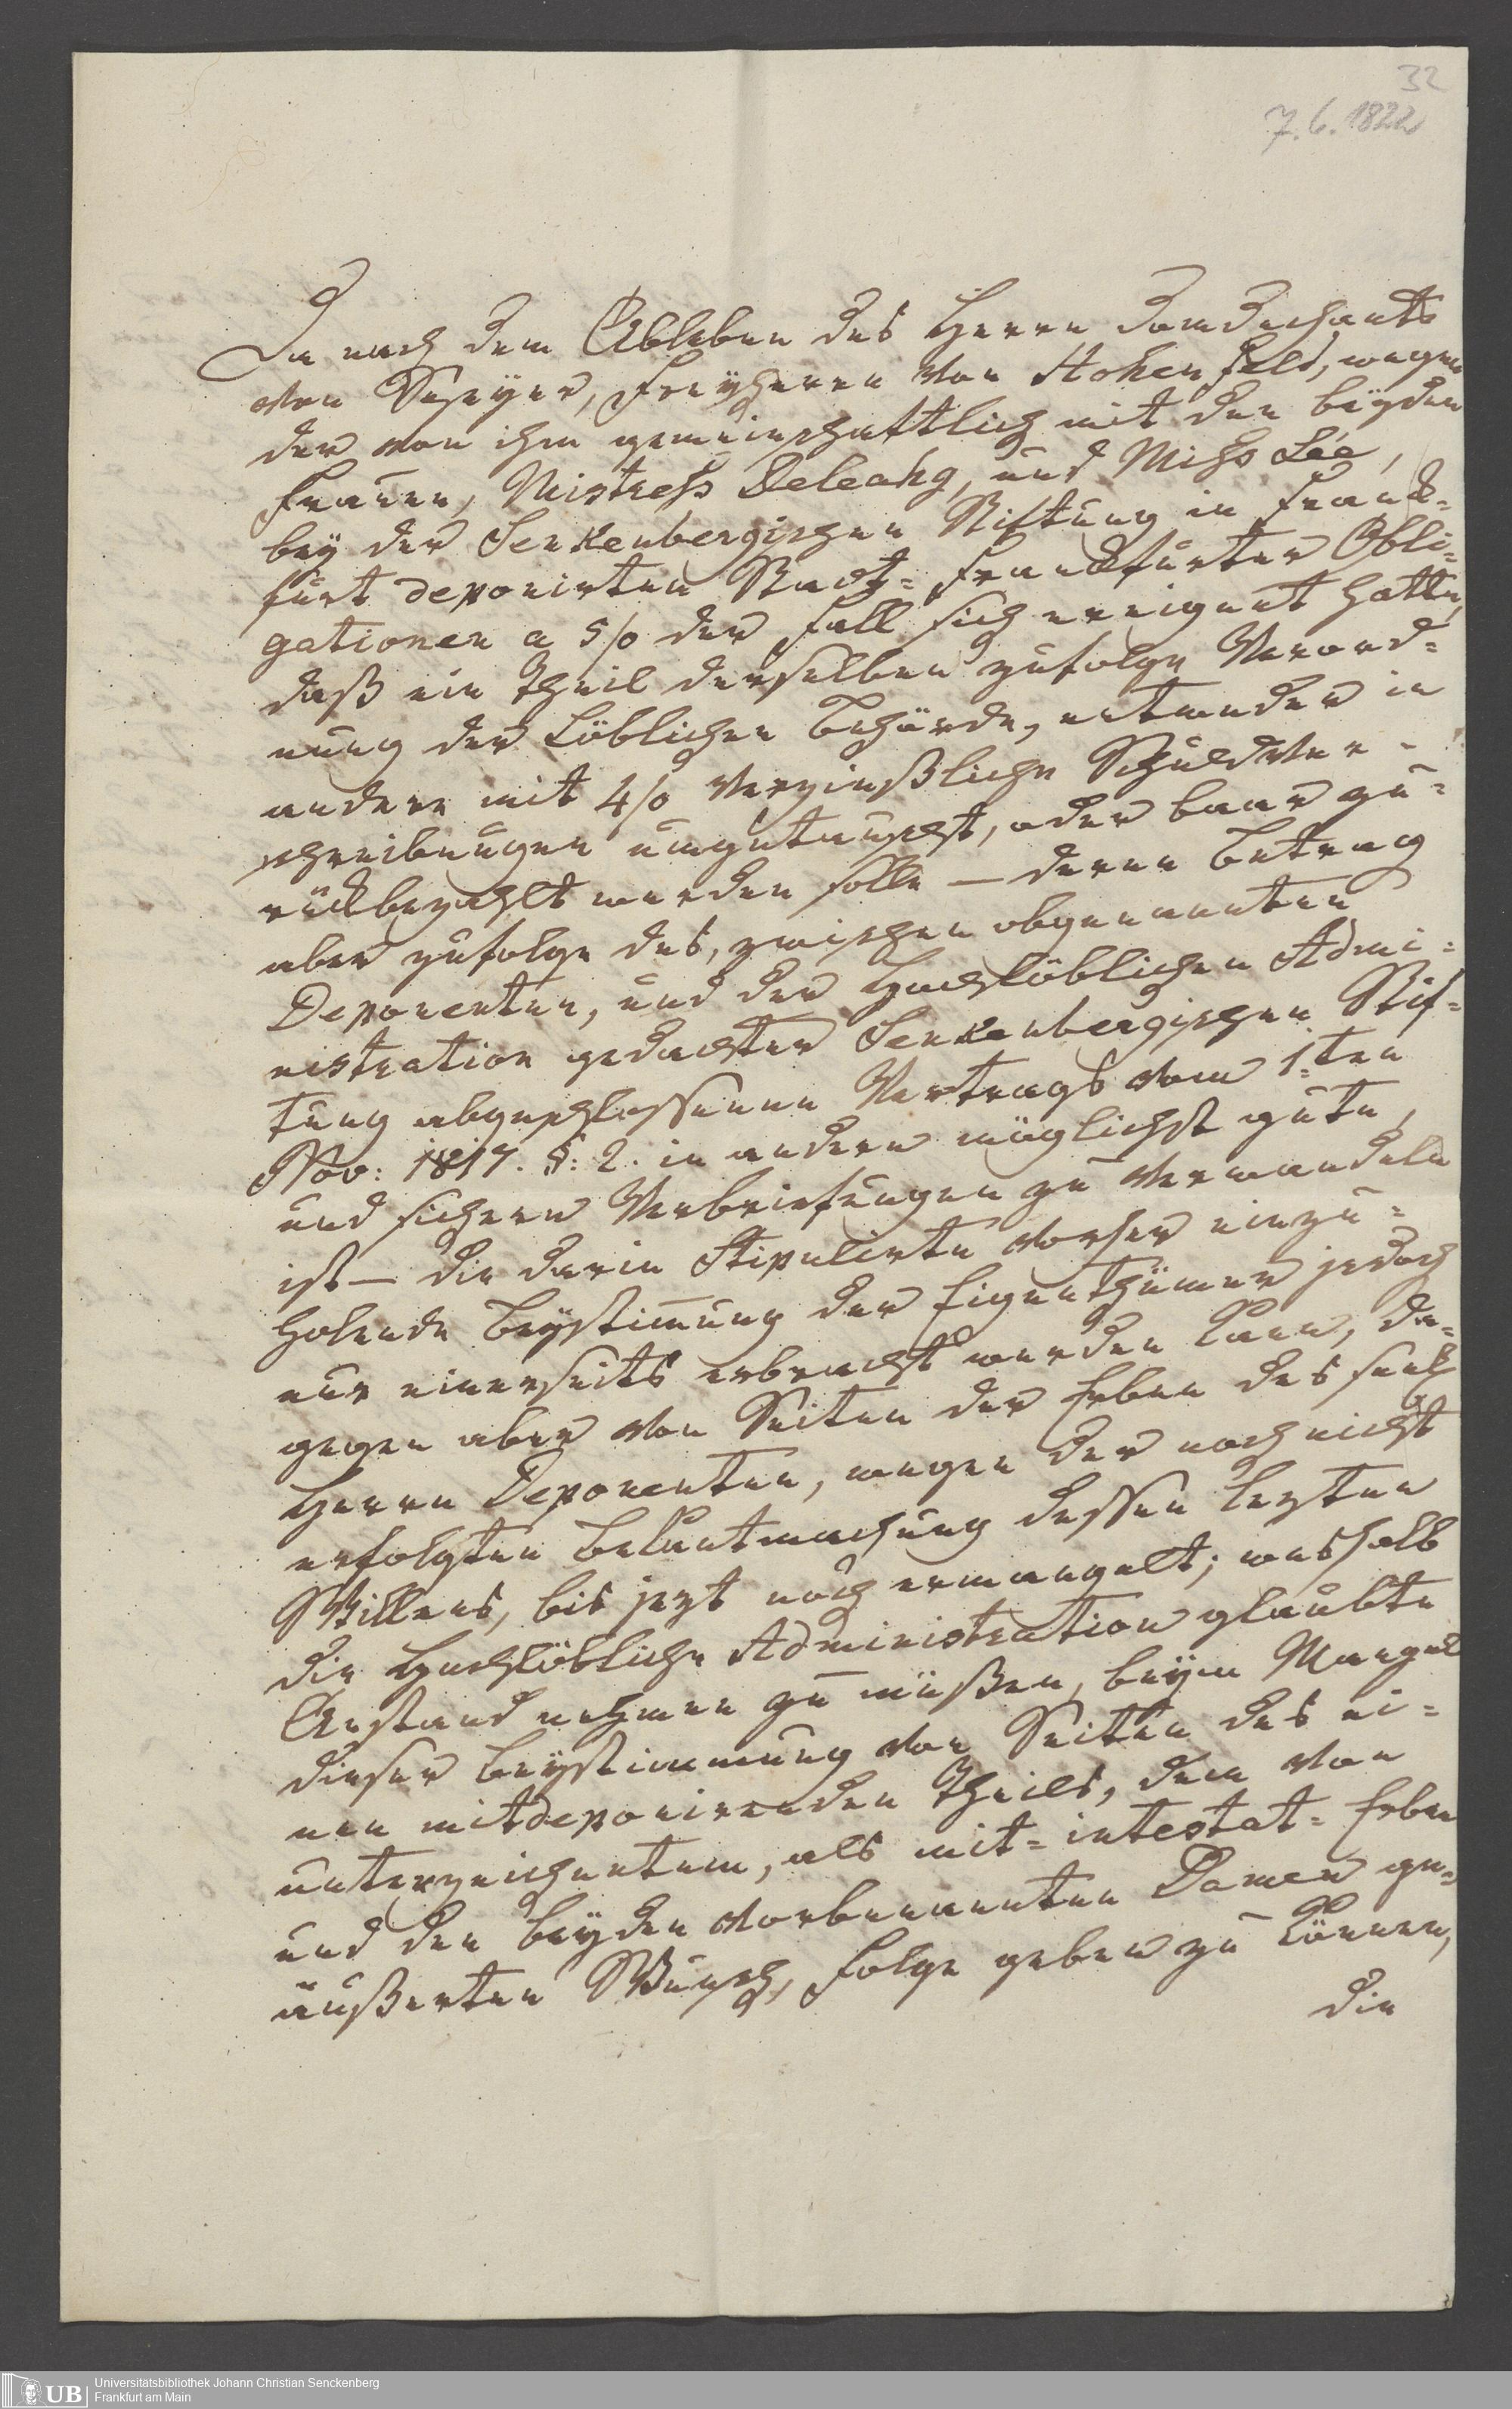 32
7.6.1822
Da nach dem Ableben des Herrn Domdechants
von Speyer, Freyherrn von Hohenfeld, wegen
der von ihm gemeinschaftlich mit den beyden
Frauen, Mistreß Deleahg, und Miß Lée,
bey der Senkenbergischen Stiftung in Frank=
furt deponirten Stadt= Frankfurter Obli=
gationen a 5/0 der Fall sich ereignet hatte,
daß ein Theil derselben zufolge Verord=
nung der Löblichen Behörde, entweder in
andere mit 4/0 verzinßliche Schuldver=
schreibungen umgetauscht, oder baar zu=
rückbezahlt werden solle — deren Betrag
aber zufolge des, zwischen obgenannten
Deponenten, und der Hochlöblichen Admi=
nistration gedachter Senkenbergischen Stif=
tung abgeschlossenen Vertrags vom 1.ten
Nov: 1817. §: 2. in andern möglichst guten,
und sichern Verbriefungen zu verwandeln
ist — die darin Stipulirte vorher einzu=
holende Beystimung der Eigenthümer jedoch
nur einerseits erbracht werden kann, da=
gegen aber von Seiten der Erben des seel
Herrn Deponenten, wegen der noch nicht
erfolgten Bekantmachung dessen lezten
Willens, bis jezt noch ermangelt; weshalb
die Hochlöbliche Administration glaubte
Anstand nehmen zu müßen, beym Mangel
dieser Beystimmung von Seiten des ei=
nen mitdeponirenden Theils, dem von
unterzeichnetem, als mit= intestat= Erben
und den beyden vorbenannten Damen ge=
äußerten Wunsch, Folge geben zu können,
die
UB
Universitätsbibliothek Johann Christian Senckenberg
Frankfurt am Main